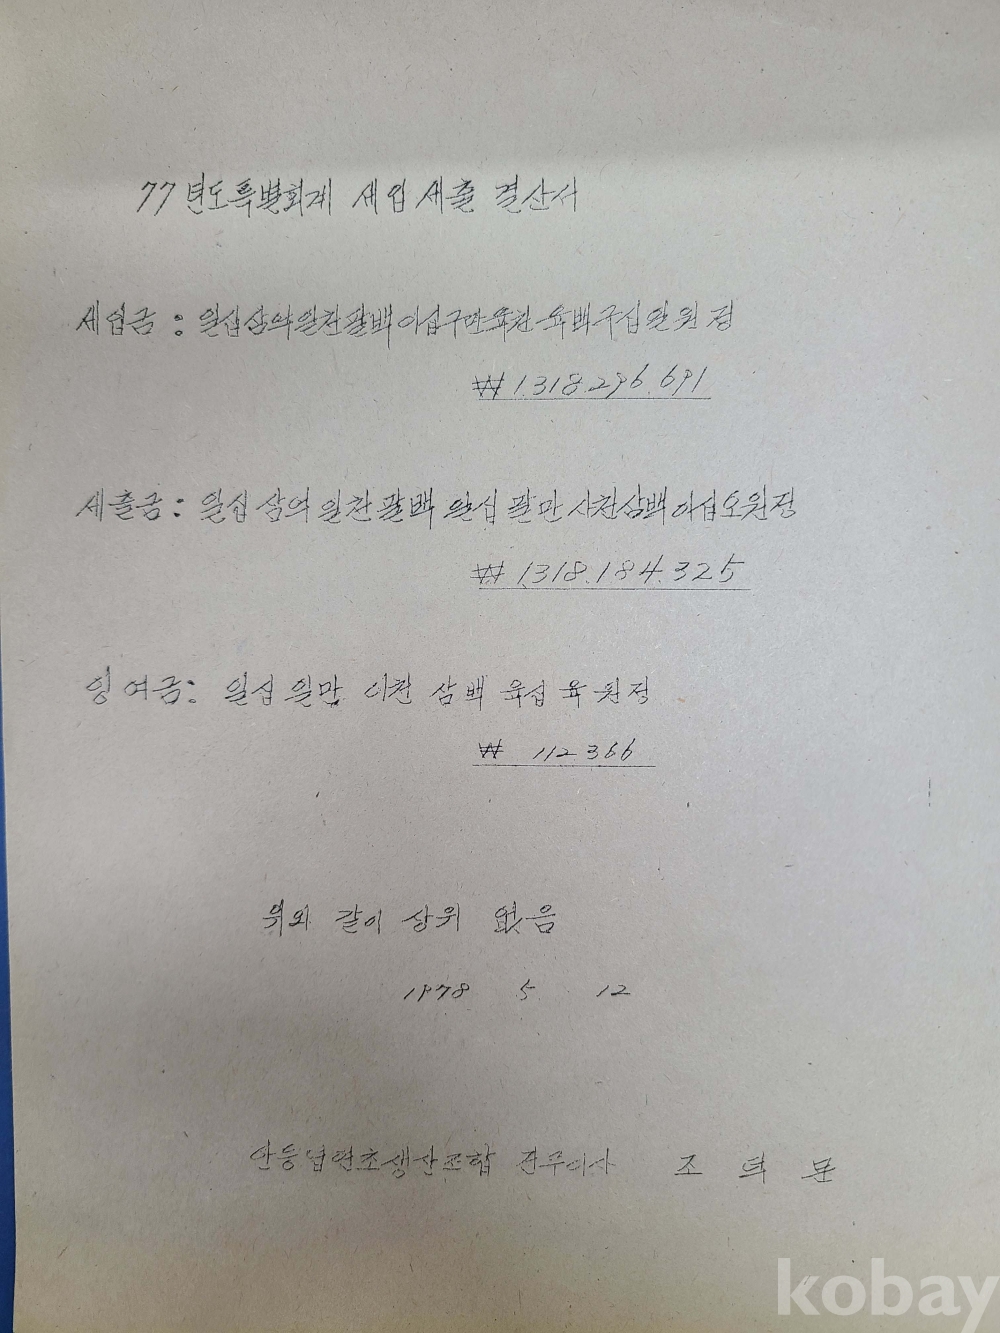 77년도특별회계 세입세출 결산서
세입금 : 일십삼억일천팔백이십구만육천육백구십일원정
₩1.318.296.691
세출금 : 일십삼억일천팔백일십팔만사천삼백이십오원정
₩1.318.184.325
잉여금: 일십일만 이천 삼백 육십 육 원정
₩ 112366
위와 같이 상위 없음
1978 5 12
안동엽연초생산조합 전무이사 조 덕 문
kobay